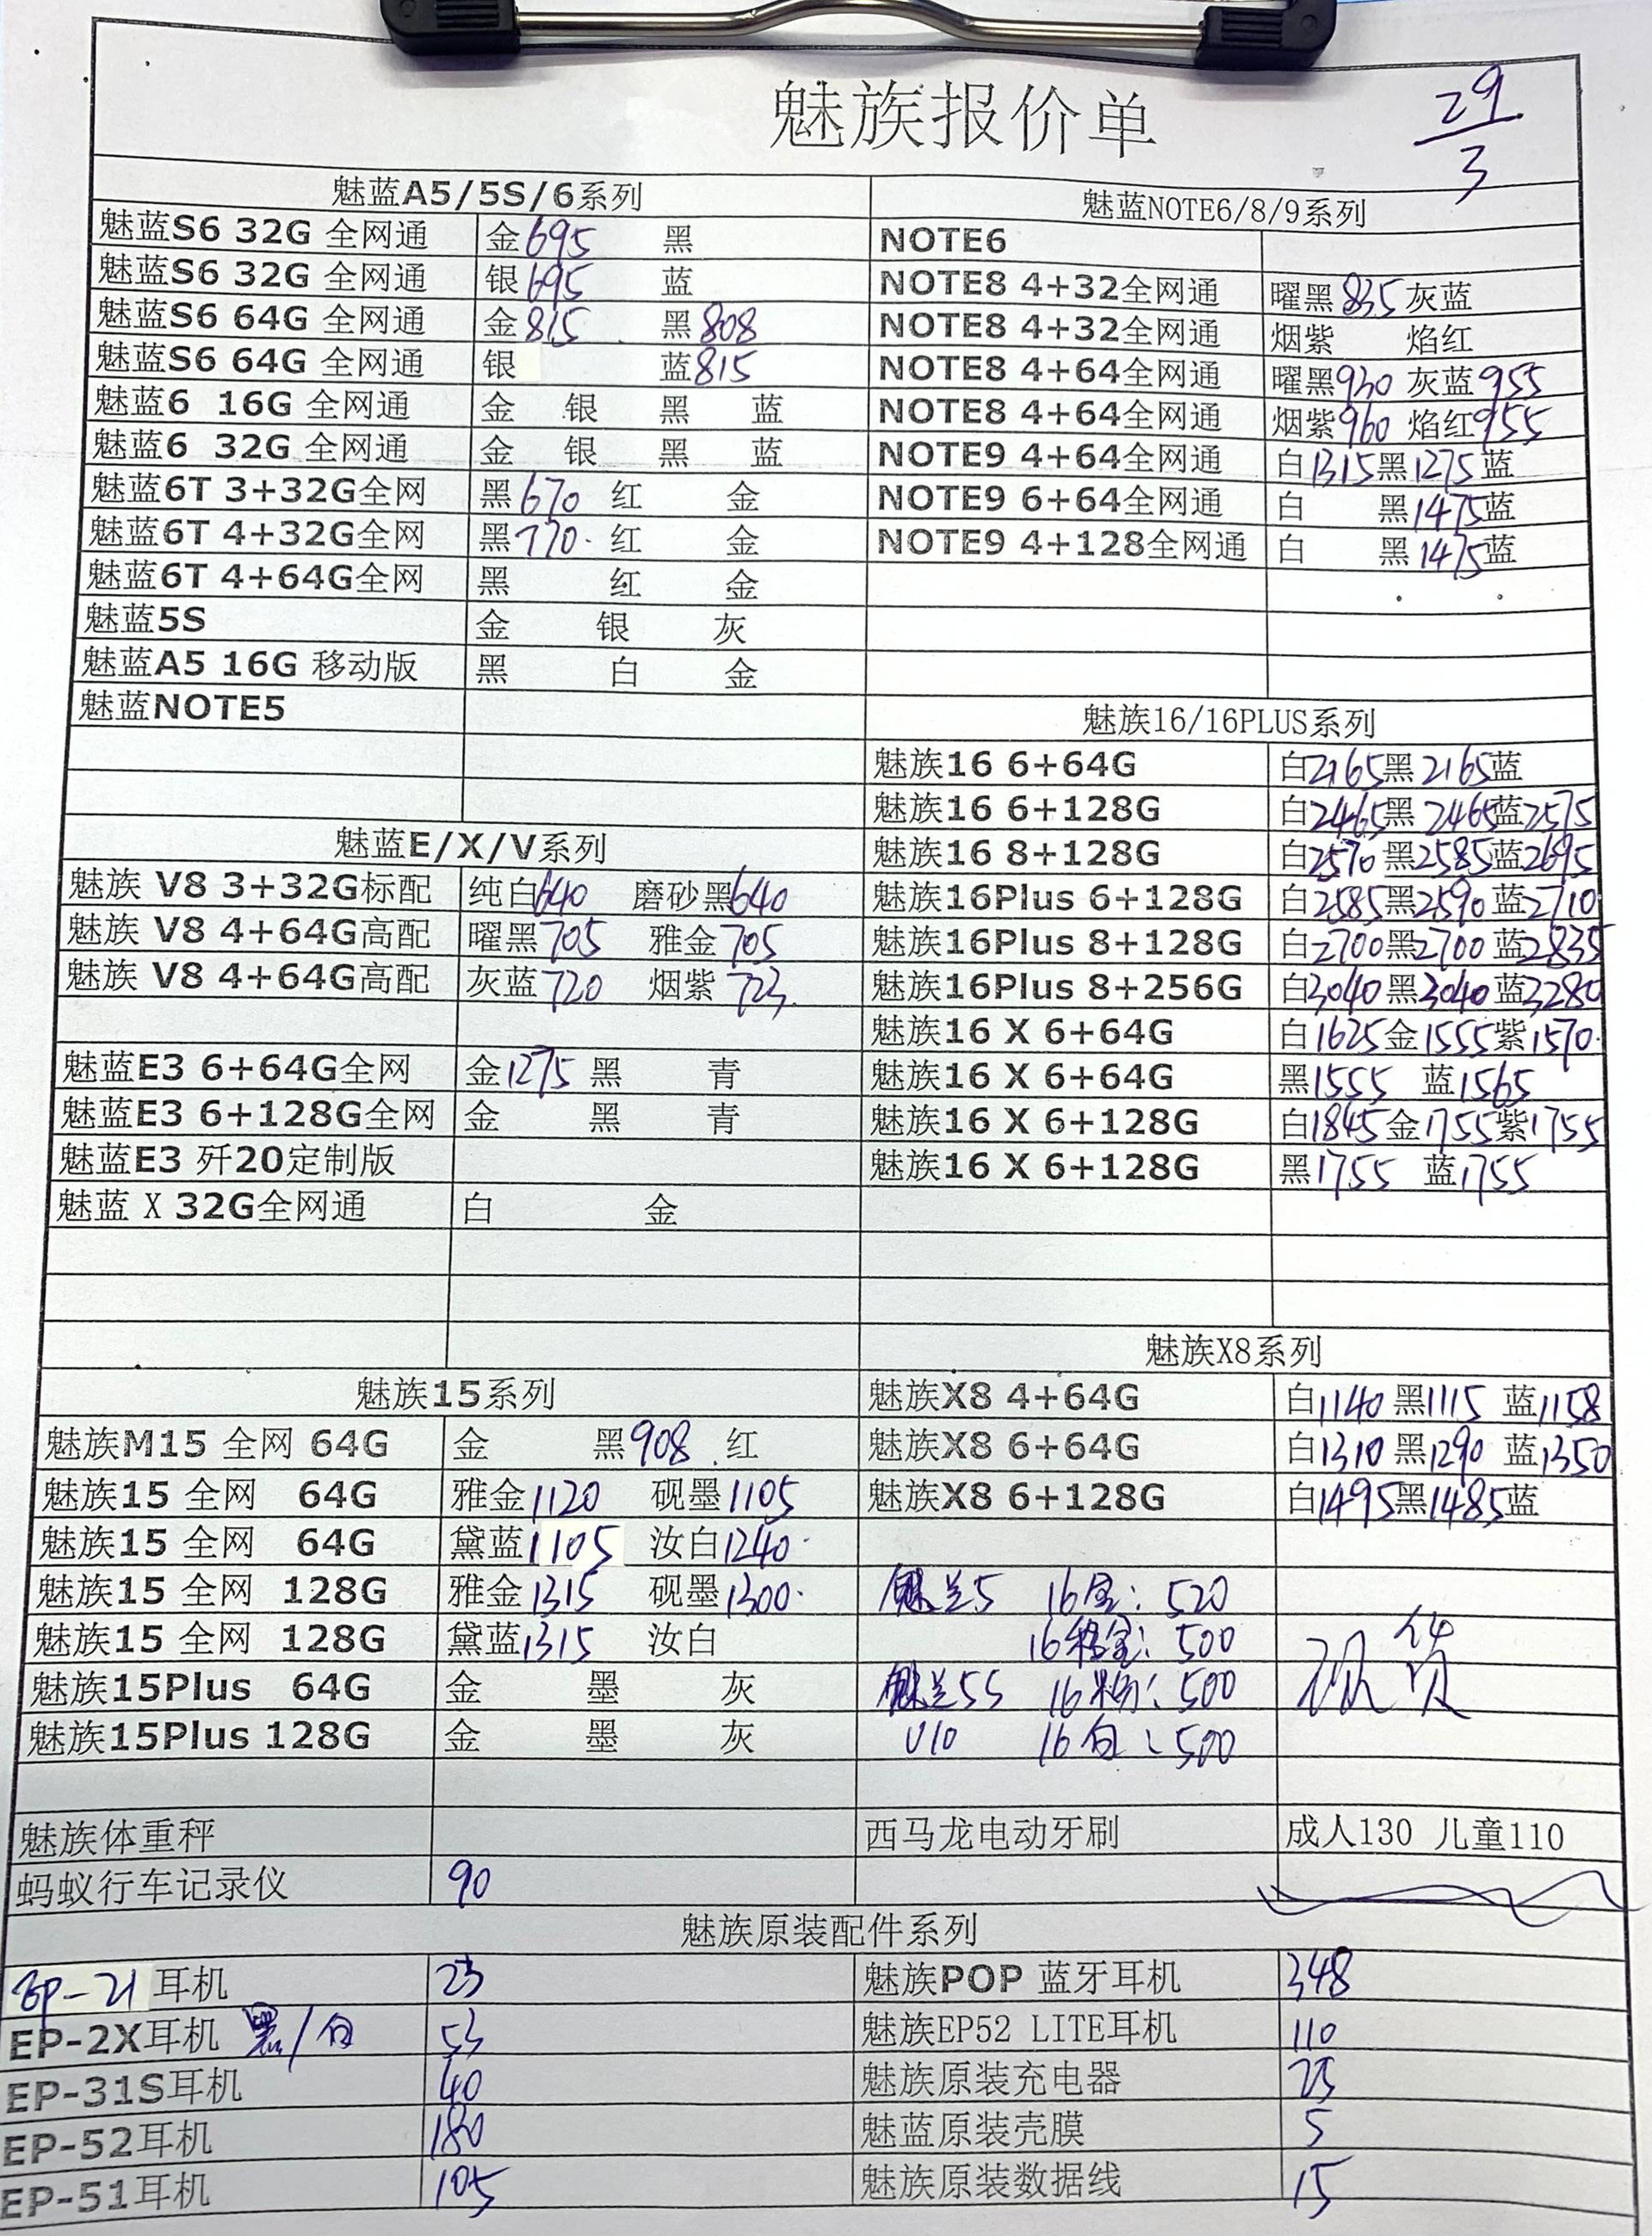 魅族报价单
29/3
魅蓝A5/5S/6系列
魅蓝S6 32G 全网通 金695 黑
魅蓝S6 32G 全网通 银695 蓝
魅蓝S6 64G 全网通 金815 黑808
魅蓝S6 64G 全网通 银 蓝815
魅蓝6 16G 全网通 金 银 黑 蓝
魅蓝6 32G 全网通 金 银 黑 蓝
魅蓝6T 3+32G全网 黑670 红 金
魅蓝6T 4+32G全网 黑770 红 金
魅蓝6T 4+64G全网 黑 红 金
魅蓝5S 金 银 灰
魅蓝A5 16G 移动版 黑 白 金
魅蓝NOTE5
魅蓝E/X/V系列
魅族 V8 3+32G标配 纯白640 磨砂黑640
魅族 V8 4+64G高配 曜黑705 雅金705
魅族 V8 4+64G高配 灰蓝720 烟紫723
魅蓝E3 6+64G全网 金1275 黑 青
魅蓝E3 6+128G全网 金 黑 青
魅蓝E3 歼20定制版
魅蓝 X 32G全网通 白 金
魅族15系列
魅族M15 全网 64G 金 黑908 红
魅族15 全网 64G 雅金1120 砚墨1105
魅族15 全网 64G 黛蓝1105 汝白1240
魅族15 全网 128G 雅金1315 砚墨1300
魅族15 全网 128G 黛蓝1315 汝白
魅族15Plus 64G 金 墨 灰
魅族15Plus 128G 金 墨 灰
魅族体重秤
蚂蚁行车记录仪 90
魅蓝NOTE6/8/9系列
NOTE6
NOTE8 4+32全网通 曜黑835 灰蓝
NOTE8 4+32全网通 烟紫 焰红
NOTE8 4+64全网通 曜黑930 灰蓝955
NOTE8 4+64全网通 烟紫960 焰红955
NOTE9 4+64全网通 白1315 黑1275 蓝
NOTE9 6+64全网通 白 黑1475 蓝
NOTE9 4+128全网通 白 黑1475 蓝
魅族16/16PLUS系列
魅族16 6+64G 白2165 黑2165 蓝
魅族16 6+128G 白2465 黑2465 蓝2575
魅族16 8+128G 白2570 黑2585 蓝2695
魅族16Plus 6+128G 白2585 黑2590 蓝2710
魅族16Plus 8+128G 白2700 黑2700 蓝2835
魅族16Plus 8+256G 白3040 黑3040 蓝3280
魅族16 X 6+64G 白1625 金1555 紫1570
魅族16 X 6+64G 黑1555 蓝1565
魅族16 X 6+128G 白1845 金1755 紫1755
魅族16 X 6+128G 黑1755 蓝1755
魅族X8系列
魅族X8 4+64G 白1140 黑1115 蓝1158
魅族X8 6+64G 白1310 黑1290 蓝1350
魅族X8 6+128G 白1495 黑1485 蓝
魅兰5 16金: 520
16移金: 500
魅兰5S 16粉: 500
U10 16白: 500
现货
西马龙电动牙刷 成人130 儿童110
魅族原装配件系列
EP-21 耳机 23 魅族POP 蓝牙耳机 348
EP-2X耳机 黑/白 53 魅族EP52 LITE耳机 110
EP-31S耳机 40 魅族原装充电器 25
EP-52耳机 180 魅蓝原装壳膜 5
EP-51耳机 105 魅族原装数据线 15